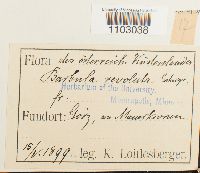 1103038
Flora des österreich. Küstenlandes
Barbula revoluta
Herbarium of the University
fr. Minneapolis, Minn.
Fundort: Görz, an Mauerkronen
1899. leg. K. Loitlesberger.